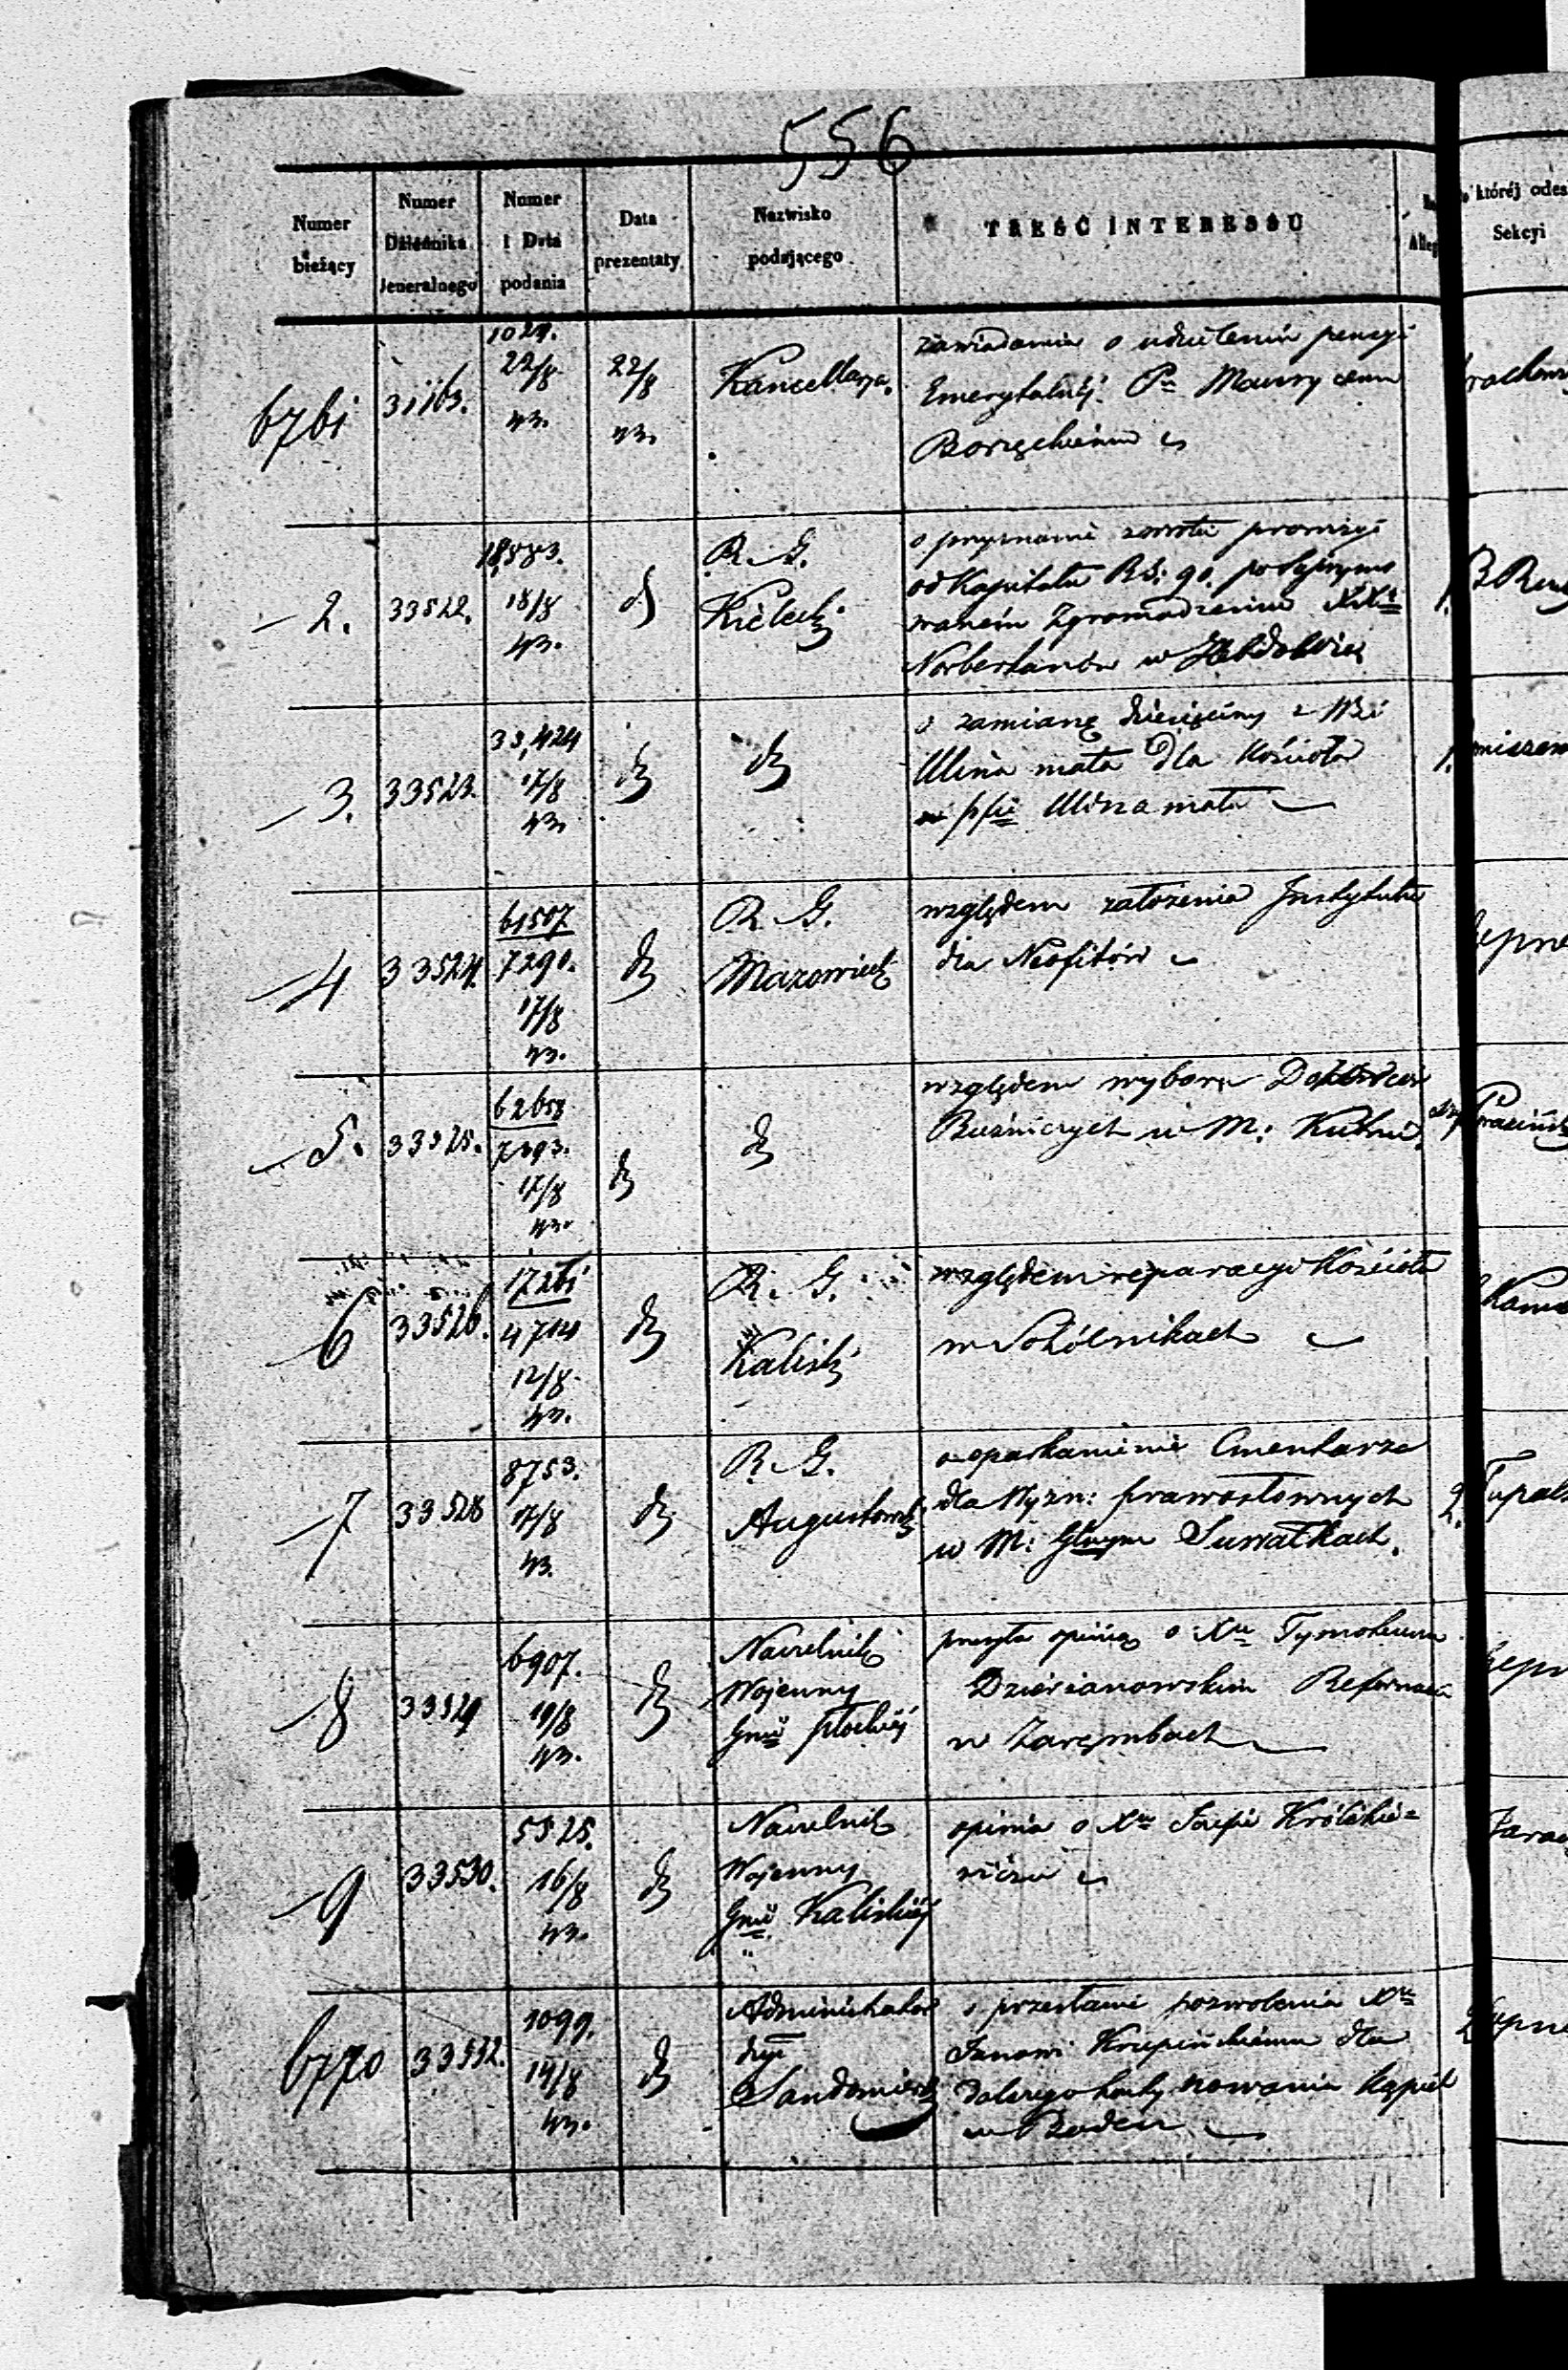 556
Numer bieżący
Numer Dziennika Jeneralnego
Numer i Data podania
Data prezentaty
Nazwisko podającego
TREŚĆ INTERESSU
któréj odes
Sekcyi
6761
1024.
22/8
43.
22/8
43.
Kancellarya.
zawiadamia o udzieleniu pensyi
Emerytalnéj Pu Maurycemu
2.
33522.
18/8
43.
R. G.
Kielecki
o przyznanie zwrotu prowizyi
od Kapitału RS: 90.
Zgromadzeniu XX
Norbertanów w
3.
33523.
33,424
17/8
43.
dº
dº
o zamianę dziesięciny z Wsi
Ulina mała dla Kościoła
w psii Ulina mała
4
33524.
61507
7290.
17/8
43.
dº
R. G.
Mazowiecki
względem założenia Instytutu
dla Neofitów
5.
33525.
17/8
43.
dº
dº
względem wyboru Dozorców
Buźniczych w M: Kutnie
6
33526.
17261
4714
12/8
43.
dº
R. G.
Kaliski
względem reparacyi Kościoła
w Sokólnikach
7
33528
8753.
17/8
43.
dº
R. G.
Augustowski
o oparkanienie Cmentarza
dla Wyzn: prawosłownych
w M: Głwym Suwałkach.
8
33529
6907.
19/8
43.
dº
Naczelnik
Wojenny
Gnii Płockiéj
przesyła opinią o Xu Tymoteuszu
Dzierżanowskim Reformacie
w Zarembach
9
33530.
5525.
16/8
43.
dº
Naczelnik
Wojenny
Gnii Kaliskiéj
opinia o Xu Józefie Królikie=
wiczu
6770
33532.
1099.
14/8
43.
dº
Administrator
dyi
Sandomierski
o przesłanie pozwolenia Xu
Janowi Krzepińskiemu dla
dalszego kontynowania kąpiel
w Baden